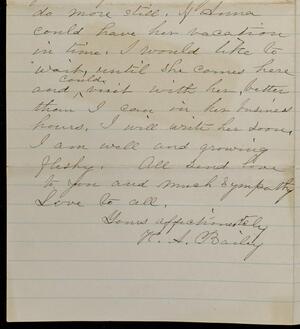 do more still. If Anna
could have her vacation
in time. I would like to
wait until she comes here
could
and visit with her better
than I can in her business
hours. I will write her soon.
I am well and growing
fleshy. All send love
to you and much sympathy
Love to all.
Yours affectionately
H. S. Bailey